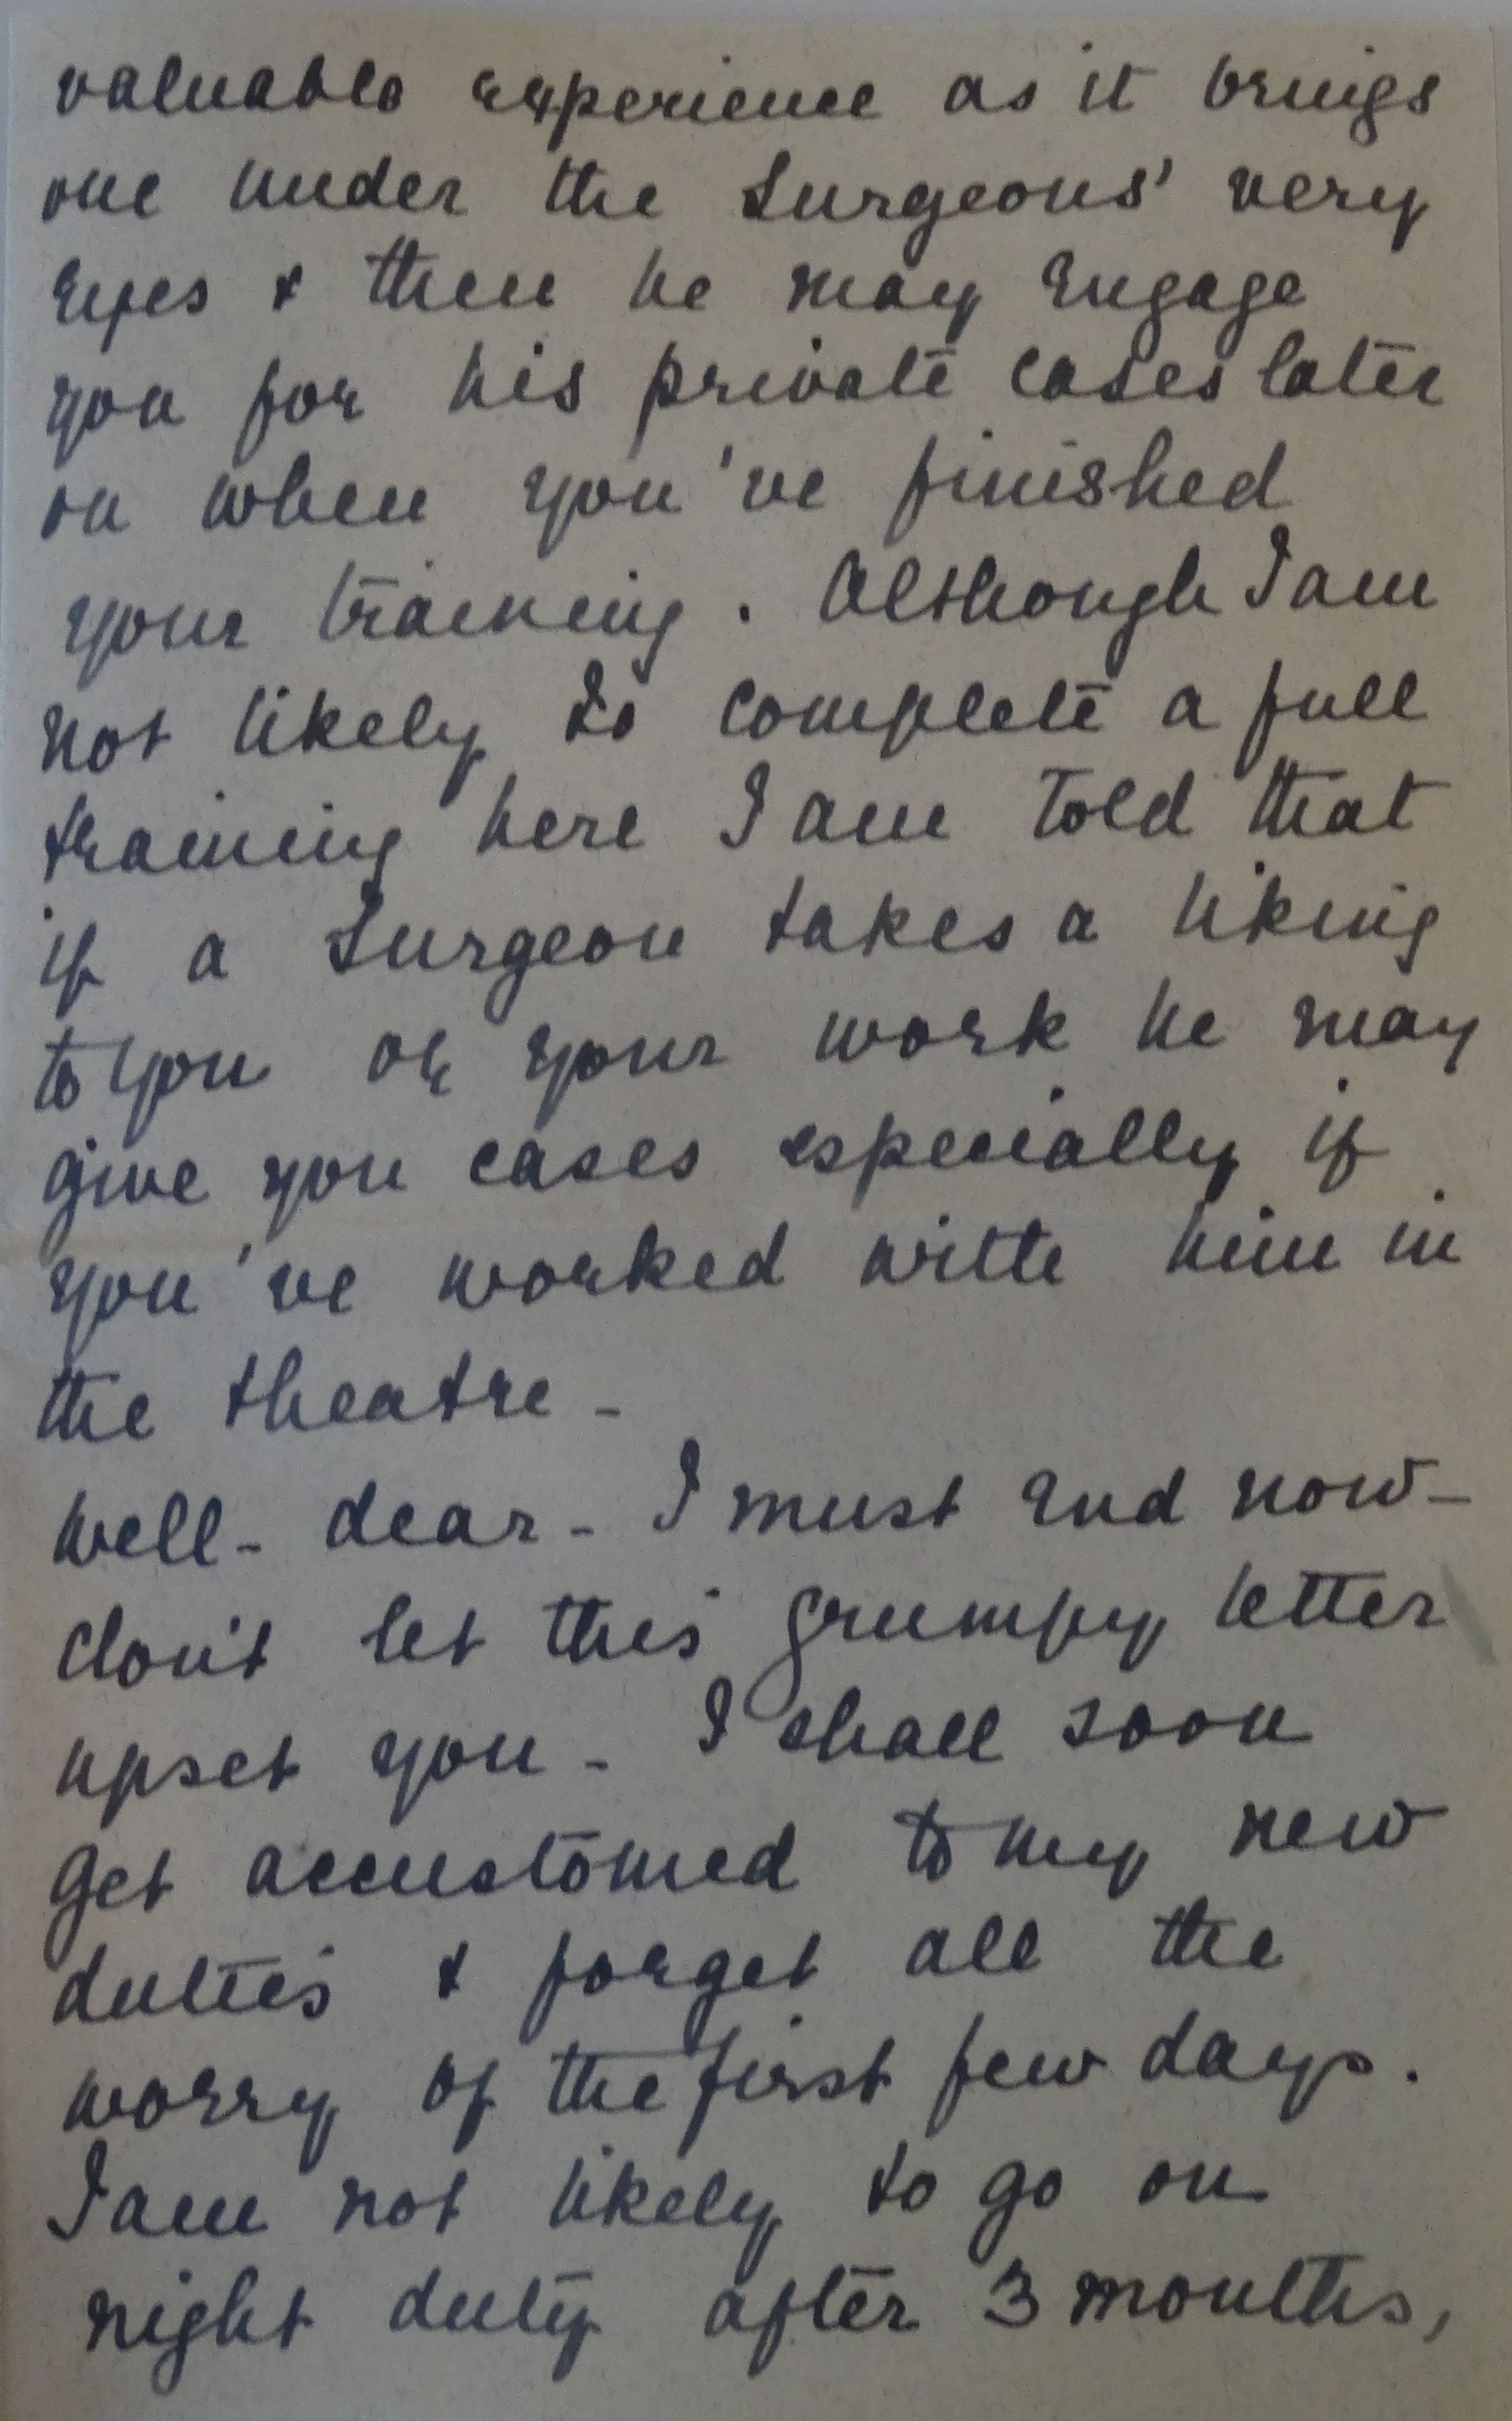 valuable experience as it brings
one under the Surgeons' very
eyes & then he may engage
you for his private cases later
on when you've finished
your training. Although I am
not likely to complete a full
training here I am told that
if a Surgeon takes a liking
to you or your work he may
give you cases especially if
you've worked with him in
the theatre -
Well - dear - I must end now -
don't let this grumpy letter
upset you - I shall soon
get accustomed to my new
duties & forget all the
worry of the first few days.
I am not likely to go on
night duty after 3 months,